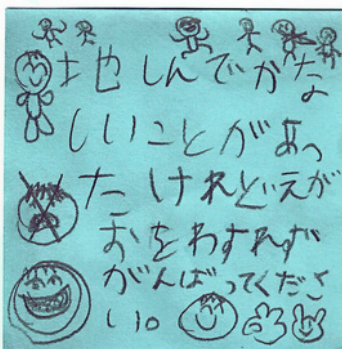 地しんでかな
しいことがあっ
たけれどえが
おをわすれず
がんばってくださ
い。